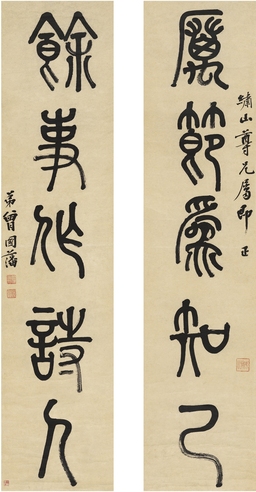 繡山尊兄屬即正
厲節爲知己
餘事作詩人
弟曾國藩